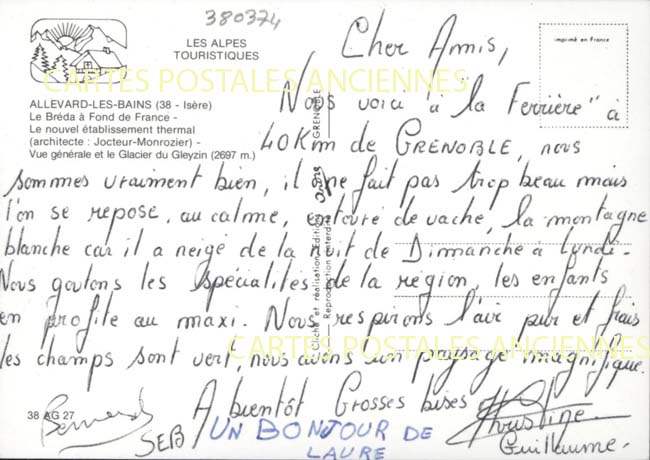 380374
LES ALPES
TOURISTIQUES
imprimé en France
CARTES POSTALES ANCIENNES
ALLEVARD-LES-BAINS (38 - Isère)
Le Bréda à Fond de France -
Le nouvel établissement thermal
(architecte : Jocteur-Monrozier) -
Vue générale et le Glacier du Gleyzin (2697 m.)
Cher Amis,
Nous voici "à la Ferrière" à
40Km de GRENOBLE, nous
sommes vraiment bien, il ne fait pas trop beau mais
l'on se repose, au calme, entouré de vache, la montagne
blanche car il a neigé de la nuit de Dimanche à Lundi.
Nous goutons les spécialités de la région, les enfants
en profite au maxi. Nous respirons l'air pur et frais
les champs sont vert, nous avons un paysage magnifique.
CARTES POSTALES ANCIENNES
A bientôt Grosses bises
Christine
Guillaume.
Bernard
SEB
UN BONJOUR DE
LAURE
38 AG 27
GRENOBLE
Cliché et réalisation édition
Reproduction interdite